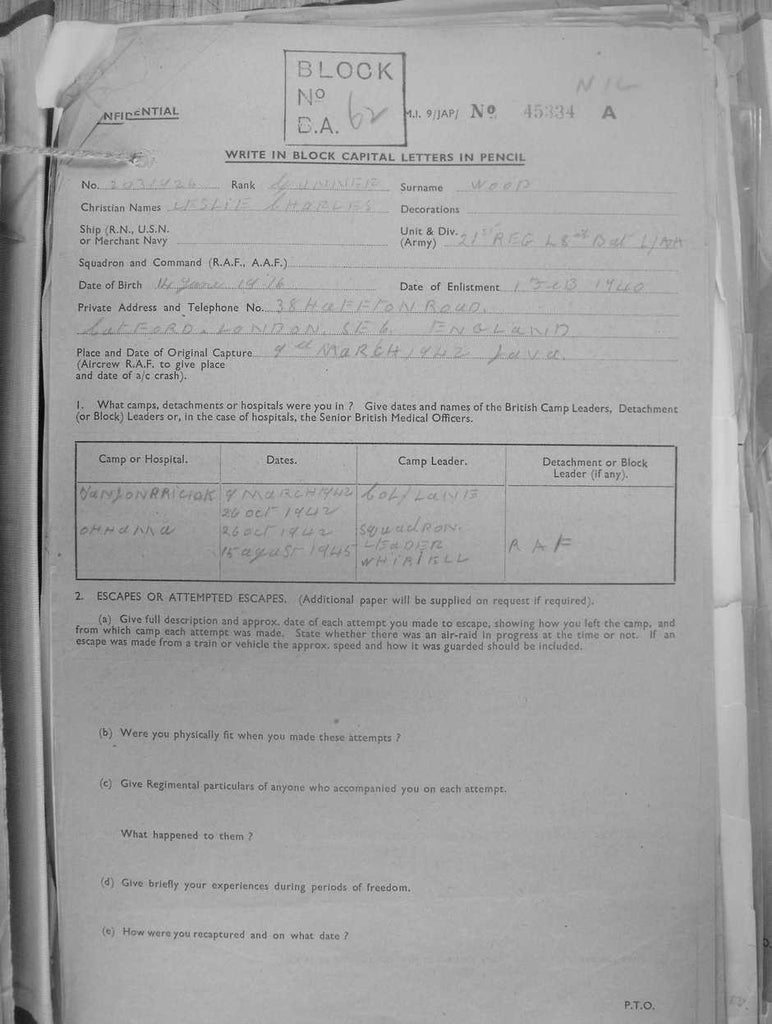 BLOCK
No
B.A. 62
NIL
NFIDENTIAL
M.I. 9/JAP/ No. 45334 A
WRITE IN BLOCK CAPITAL LETTERS IN PENCIL
No. Rank GUNNER Surname WOOD
Christian Names LESLIE CHARLES Decorations
Ship (R.N., U.S.N. or Merchant Navy
Unit & Div. (Army) 21st REG 48 Bat L/AA
Squadron and Command (R.A.F., A.A.F.)
Date of Birth 14 June 1916 Date of Enlistment 1 FEB 1940
Private Address and Telephone No. 38 HAFFTON ROAD.
CATFORD. LONDON. SE6. ENGLAND
Place and Date of Original Capture 9th MARCH 1942 Java.
(Aircrew R.A.F. to give place
and date of a/c crash).
1. What camps, detachments or hospitals were you in ? Give dates and names of the British Camp Leaders, Detachment
(or Block) Leaders or, in the case of hospitals, the Senior British Medical Officers.
Camp or Hospital. Dates. Camp Leader. Detachment or Block Leader (if any).
9 MARCH 1942 COL/LANE
26 OCT 1942
OHHAMA 26 OCT 1942 SQUADRON.
15 August 1945 LEADER RAF
2. ESCAPES OR ATTEMPTED ESCAPES. (Additional paper will be supplied on request if required).
(a) Give full description and approx. date of each attempt you made to escape, showing how you left the camp, and
from which camp each attempt was made. State whether there was an air-raid in progress at the time or not. If an
escape was made from a train or vehicle the approx. speed and how it was guarded should be included.
(b) Were you physically fit when you made these attempts ?
(c) Give Regimental particulars of anyone who accompanied you on each attempt.
What happened to them ?
(d) Give briefly your experiences during periods of freedom.
(e) How were you recaptured and on what date ?
P.T.O.